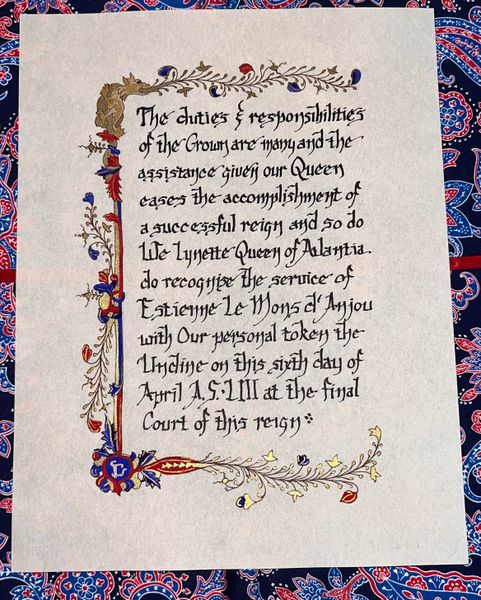 The duties & responsibilities
of the Crown are many and the
assistance given our Queen
eases the accomplishment of
a successful reign and so do
We Lynette Queen of Atlantia
do recognize the service of
Estienne Le Mons d'Anjou
with Our personal token the
Undine on this sixth day of
April A.S. LIII at the final
Court of this reign